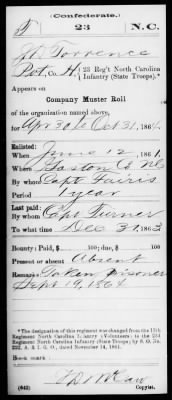 (Confederate.)
T 23 N. C.
Torrence
Pvt, Co. H, 23 Reg't North Carolina
Infantry (State Troops).*
Appears on
Company Muster Roll
of the organization named above,
for Apr 30 to Oct 31, 1864.
Enlisted:
When June 12, 1861.
Where Gaston Co NC
By whom Capt Fairis
Period 1 year
Last paid:
By whom Capt Turner
To what time Dec 31, 1863
Bounty: Paid, $ /100; due $ /100
Present or absent Absent
Remarks: Taken prisoner
Sept 19, 1864
*The designation of this regiment was changed from the 13th
Regiment North Carolina Infantry (Volunteers) to the 23d
Regiment North Carolina Infantry (State Troops) by S. O. No.
222, A. & I. G. O., dated November 14, 1861.
Book mark:
(642) Copyist.